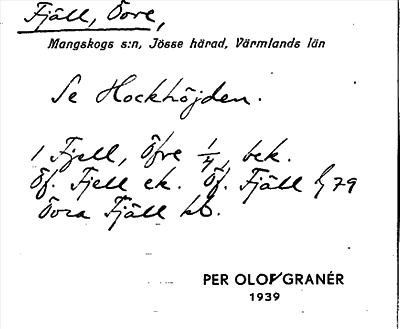 Fjäll, Övre,
Mangskogs s:n, Jösse härad, Värmlands län
Se Hockhöjden.
1 Fjell, Öfre 1/4, bek.
Öf. Fjell ek. Öf. Fjäll 79
Övra Fjäll
PER OLOF GRANÉR
1939